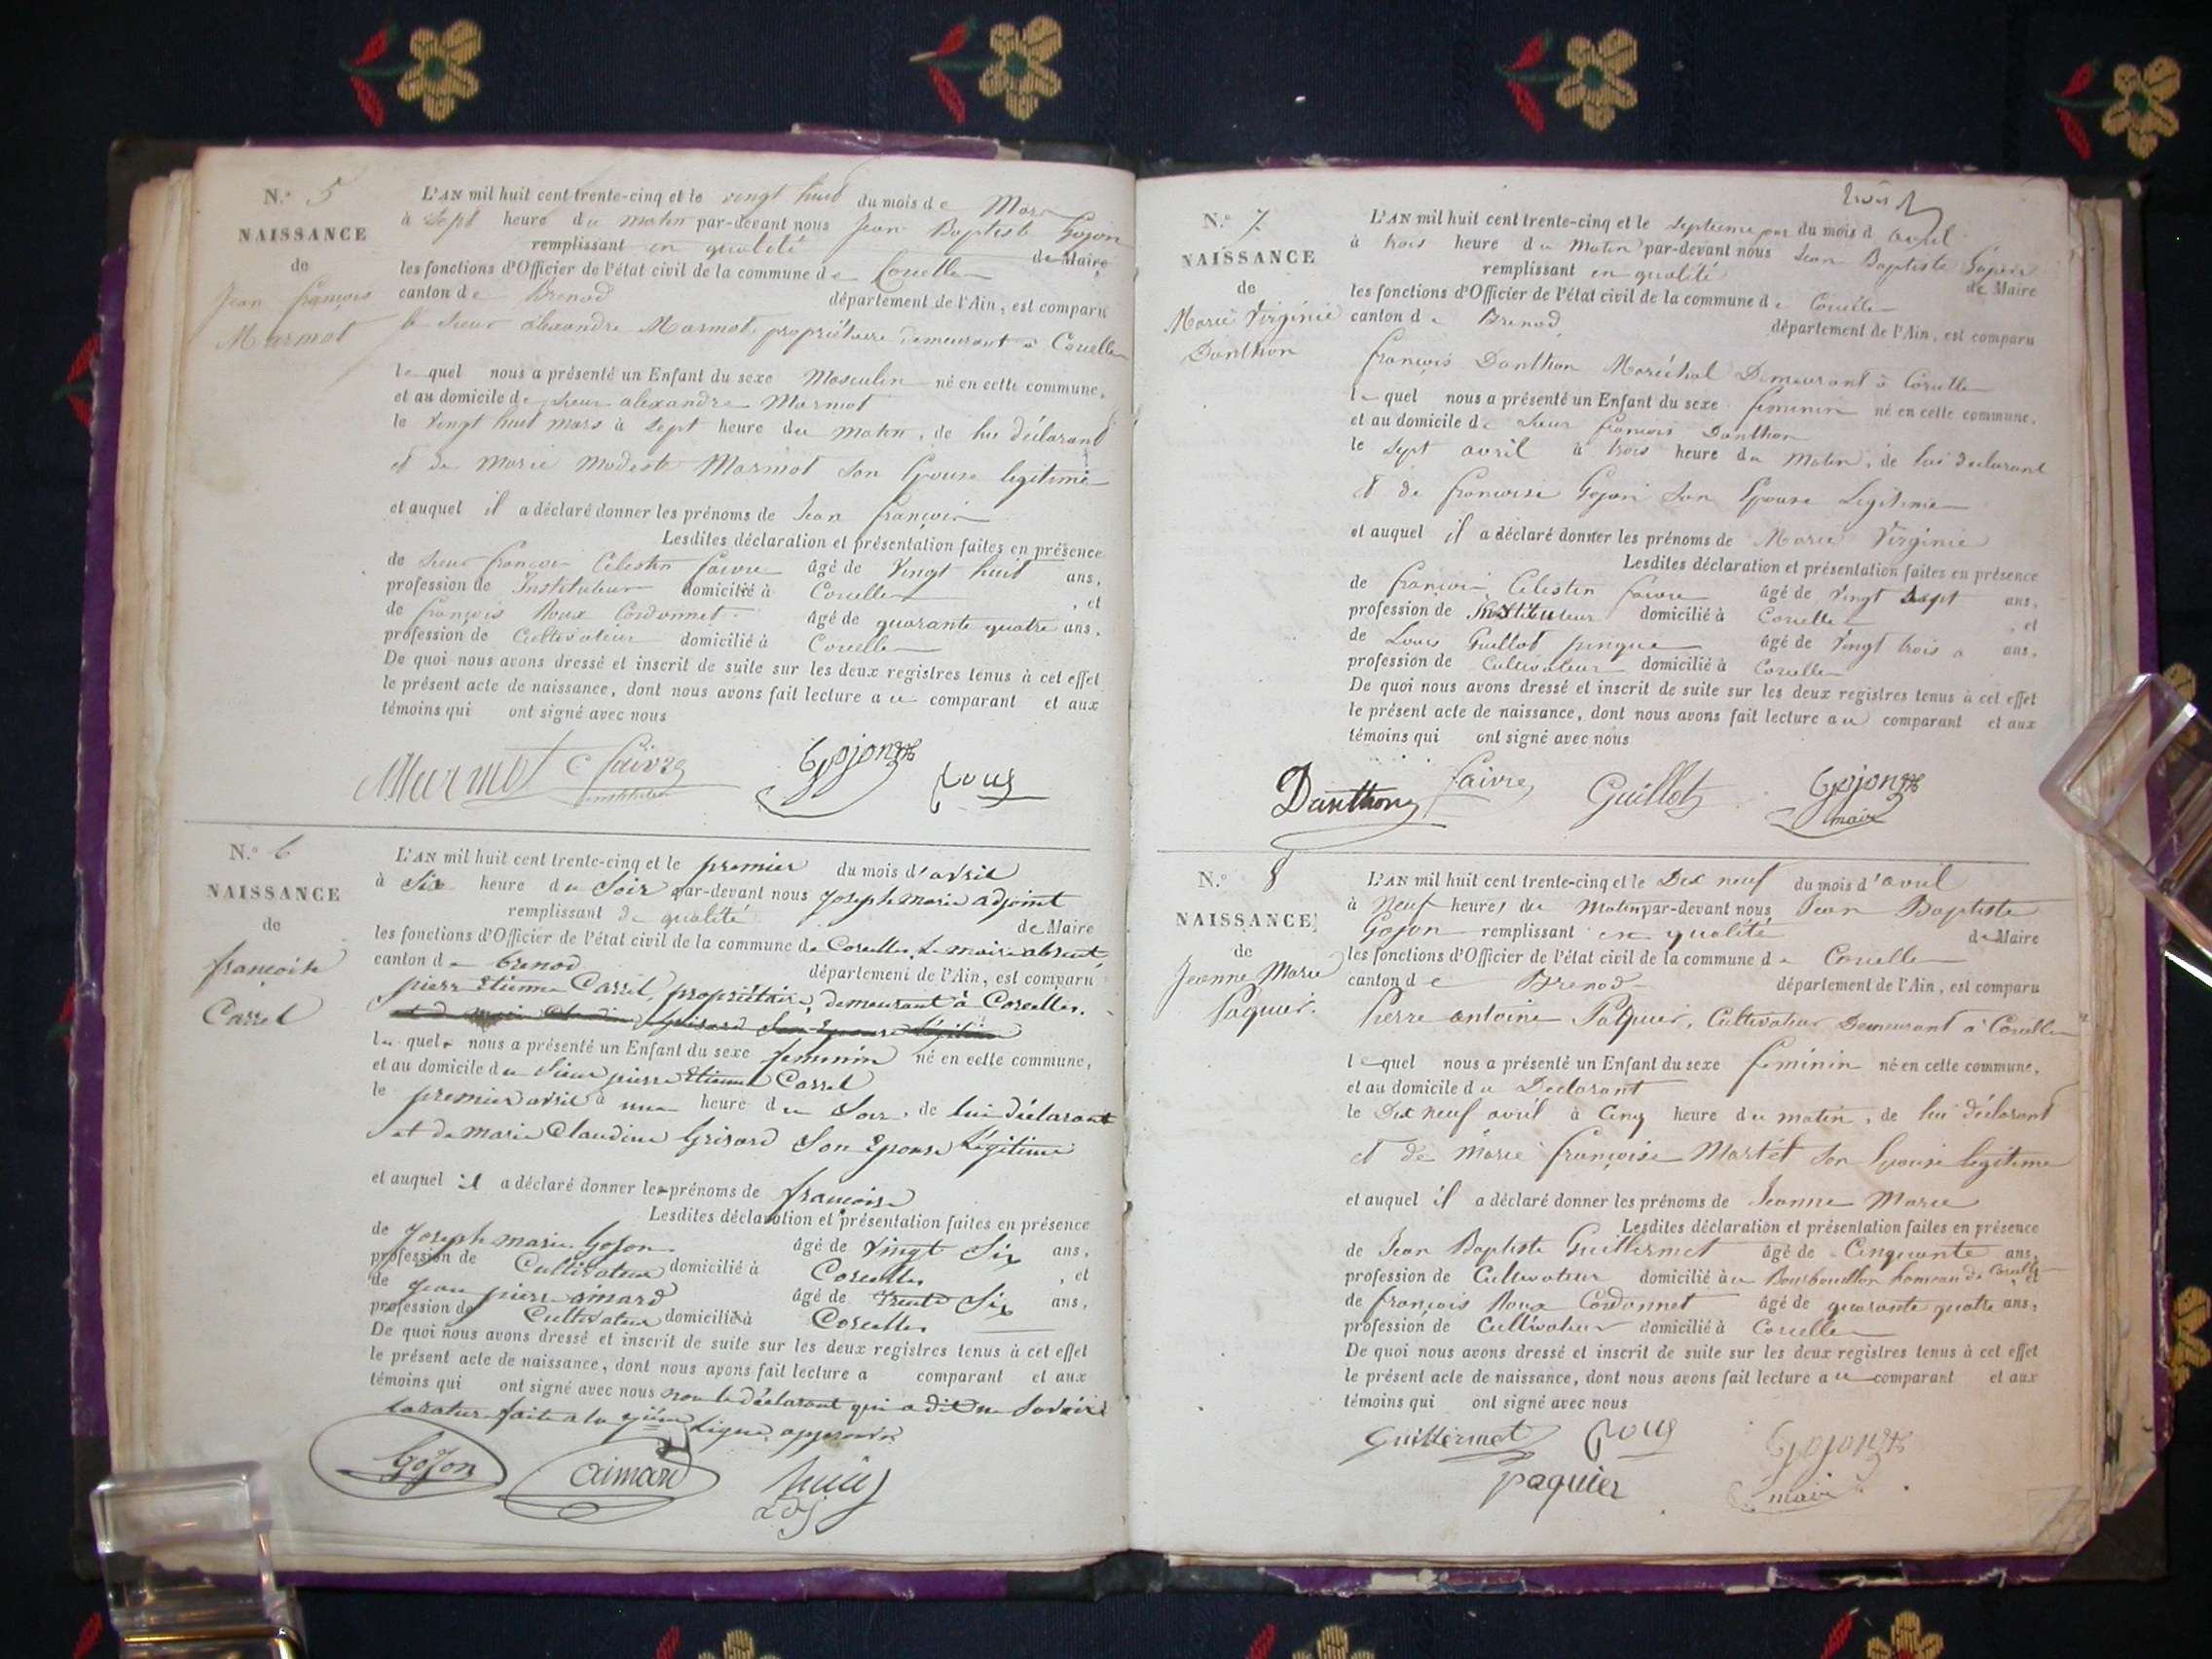 N.° 5
NAISSANCE
de
Jean François
Marmot
L'AN mil huit cent trente-cinq et le vingt huit du mois de Mars
à Sept heure du matin par-devant nous Jean Baptiste Gojon
remplissant en qualité de Maire
les fonctions d'Officier de l'état civil de la commune de Corcelles
canton de Brenod département de l'Ain, est comparu
le sieur alexandre Marmot, propriétaire demeurant à Corcelles
lequel nous a présenté un Enfant du sexe Masculin né en cette commune,
et au domicile de sieur alexandre Marmot
le Vingt huit mars à Sept heure du matin, de lui déclarant
et de Marie Modeste Marmot son Epouse legitime
et auquel il a déclaré donner les prénoms de Jean François
Lesdites déclaration et présentation faites en présence
de sieur François Célestin faivre âgé de Vingt huit ans,
profession de Instituteur domicilié à Corcelles, et
de françois Roux Cordonnet âgé de quarante quatre ans,
profession de Cultivateur domicilié à Corcelles
De quoi nous avons dressé et inscrit de suite sur les deux registres tenus à cet effet
le présent acte de naissance, dont nous avons fait lecture au comparant et aux
témoins qui ont signé avec nous
Marmot C faivre Gojon Roux
instituteur
N.° 6
NAISSANCE
de
françoise
Carrel
L'AN mil huit cent trente-cinq et le premier du mois d'avril
à Six heure du Soir par-devant nous Joseph marie adjoint
remplissant de qualité de Maire
les fonctions d'Officier de l'état civil de la commune de Corcelles, le maire absent,
canton de brenod département de l'Ain, est comparu
pierre Etienne Carrel, propriétaire, demeurant à Corcelles.
et de marie Claudine Grisard Son Epouse légitime
lequel nous a présenté un Enfant du sexe feminin né en cette commune,
et au domicile du Sieur pierre Etienne Carrel
le premier avril à une heure du Soir, de lui déclarant
et de marie Claudine Grisard Son Epouse Légitime
et auquel il a déclaré donner les prénoms de françoise
Lesdites déclaration et présentation faites en présence
de Joseph marie Gojon âgé de Vingt Six ans,
profession de Cultivateur domicilié à Corcelles, et
de jean pierre aimard âgé de Trente Six ans,
profession de Cultivateur domicilié à Corcelles
De quoi nous avons dressé et inscrit de suite sur les deux registres tenus à cet effet
le présent acte de naissance, dont nous avons fait lecture a comparant et aux
témoins qui ont signé avec nous non le déclarant qui a dit ne Savoir
faite a la ligne approuvée
Gojon aimard
adj
N.° 7
NAISSANCE
de
Marie Virginie
Danthon
L'AN mil huit cent trente-cinq et le Septieme jour du mois d avril
à trois heure du Matin par-devant nous Jean Baptiste Gojon
remplissant en qualité de Maire
les fonctions d'Officier de l'état civil de la commune de Corcelles
canton de Brenod département de l'Ain, est comparu
françois Danthon Maréchal Demeurant à Corcelles
lequel nous a présenté un Enfant du sexe feminin né en cette commune,
et au domicile de Sieur françois Danthon
le sept avril à trois heure du Matin, de lui declarant
et de françoise Gojon son Epouse Legitime
et auquel il a déclaré donner les prénoms de Marie Virginie
Lesdites déclaration et présentation faites en présence
de françois Celestin faivre âgé de Vingt Sept ans,
profession de Instituteur domicilié à Corcelles, et
de Louis Guillot âgé de Vingt trois ans,
profession de Cultivateur domicilié à Corcelles
De quoi nous avons dressé et inscrit de suite sur les deux registres tenus à cet effet
le présent acte de naissance, dont nous avons fait lecture au comparant et aux
témoins qui ont signé avec nous
Danthon faivre Guillot Gojon
maire
N.° 8
NAISSANCE
de
Jeanne Marie
Paquier.
L'AN mil huit cent trente-cinq et le Dix neuf du mois d'avril
à Neuf heures du Matin par-devant nous Jean Baptiste
Gojon remplissant en qualité de Maire
les fonctions d'Officier de l'état civil de la commune de Corcelles
canton de Brenod département de l'Ain, est comparu
Pierre antoine Paquier, Cultivateur Demeurant à Corcelles
lequel nous a présenté un Enfant du sexe feminin né en cette commune,
et au domicile du Declarant
le Dix neuf avril à Cinq heure du matin, de lui déclarant
et de Marie françoise Martet son Epouse legitime
et auquel il a déclaré donner les prénoms de Jeanne Marie
Lesdites déclaration et présentation faites en présence
de Jean Baptiste Guillermet âgé de Cinquante ans,
profession de Cultivateur domicilié au Bourbouillon hameau de Corcelles, et
de françois Roux Cordonnet âgé de quarante quatre ans,
profession de Cultivateur domicilié à Corcelles
De quoi nous avons dressé et inscrit de suite sur les deux registres tenus à cet effet
le présent acte de naissance, dont nous avons fait lecture au comparant et aux
témoins qui ont signé avec nous
Guillermet Roux Gojon
paquier maire